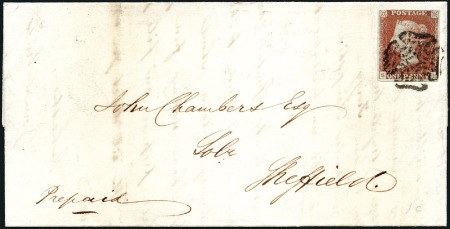 POSTAGE
ONE PENNY
John Chambers Esq
Solr
Sheffield.
Prepaid.